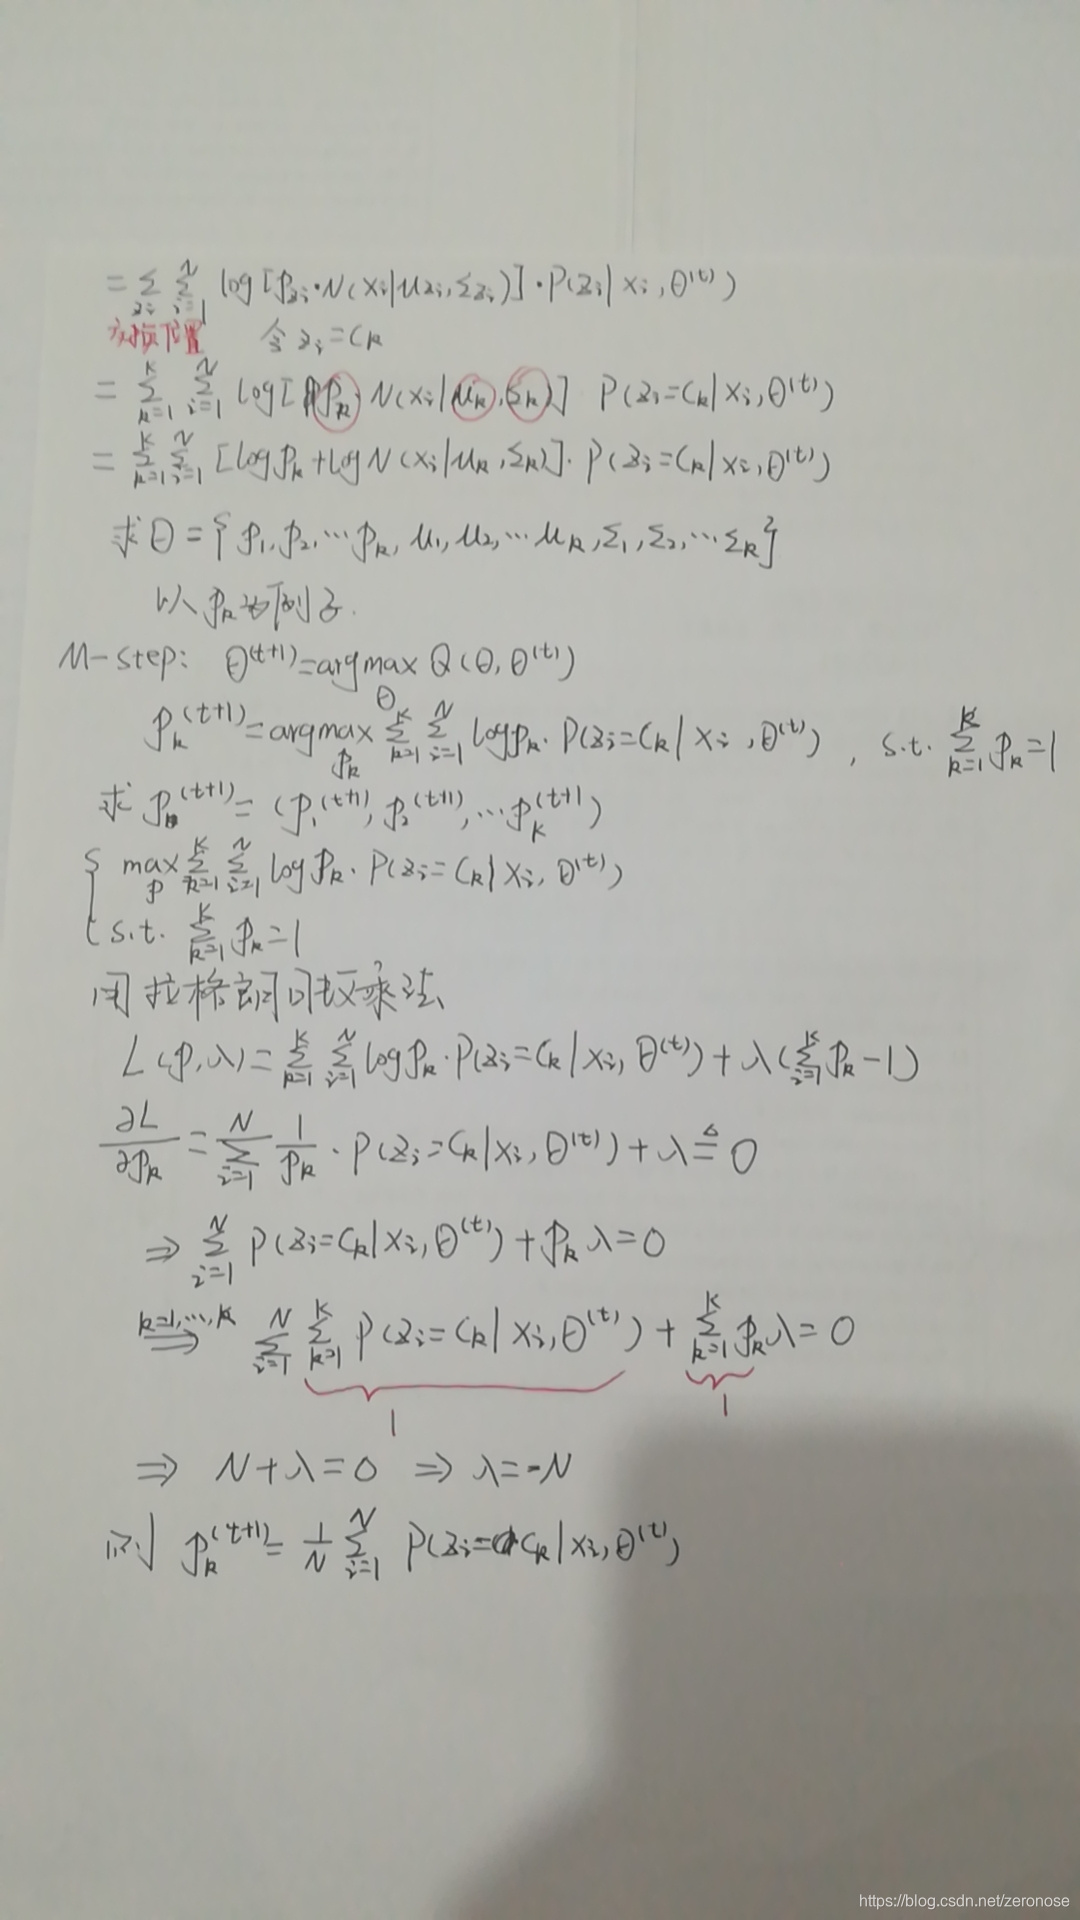 = Σ_{z_i} Σ_{i=1}^{N} log[p_{z_i}·N(x_i|μ_{z_i},Σ_{z_i})]·P(z_i|x_i,θ^{(t)})
对换位置 令 z_i=C_k
= Σ_{k=1}^{K} Σ_{i=1}^{N} log[p_k·N(x_i|μ_k,Σ_k)] P(z_i=C_k|x_i,θ^{(t)})
= Σ_{k=1}^{K} Σ_{i=1}^{N} [log p_k+log N(x_i|μ_k,Σ_k)]·P(z_i=C_k|x_i,θ^{(t)})
求 θ={p_1,p_2,…p_k,μ_1,μ_2,…μ_k,Σ_1,Σ_2,…Σ_k}
以 p_k 为例子.
M-step: θ^{(t+1)}=argmax_θ Q(θ,θ^{(t)})
p_k^{(t+1)}=argmax_{p_k} Σ_{k=1}^{K} Σ_{i=1}^{N} log p_k·P(z_i=C_k|x_i,θ^{(t)}), s.t. Σ_{k=1}^{K} p_k=1
求 p^{(t+1)}=(p_1^{(t+1)},p_2^{(t+1)},…p_K^{(t+1)})
{ max_p Σ_{k=1}^{K} Σ_{i=1}^{N} log p_k·P(z_i=C_k|x_i,θ^{(t)})
s.t. Σ_{k=1}^{K} p_k=1
用拉格朗日乘法
L(p,λ)=Σ_{k=1}^{K} Σ_{i=1}^{N} log p_k·P(z_i=C_k|x_i,θ^{(t)})+λ(Σ_{i=1}^{K} p_k-1)
∂L/∂p_k=Σ_{i=1}^{N} 1/p_k·P(z_i=C_k|x_i,θ^{(t)})+λ≜0
⇒ Σ_{i=1}^{N} P(z_i=C_k|x_i,θ^{(t)})+p_kλ=0
k=1,…,k ⇒ Σ_{i=1}^{N} Σ_{k=1}^{K} P(z_i=C_k|x_i,θ^{(t)})+Σ_{k=1}^{K} p_kλ=0
1 1
⇒ N+λ=0 ⇒ λ=-N
则 p_k^{(t+1)}=1/N Σ_{i=1}^{N} P(z_i=C_k|x_i,θ^{(t)})
https://blog.csdn.net/zeronose